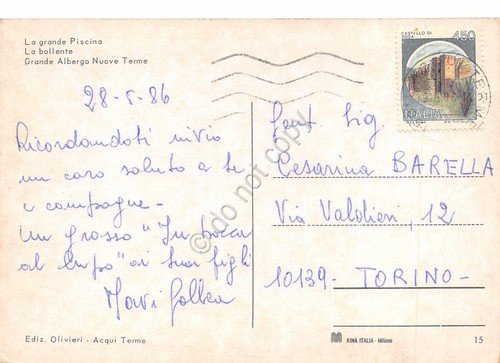 La grande Piscina
La bollente
Grande Albergo Nuove Terme
28-5-86
Ricordandoti invio
un caro saluto a te
e compagne -
Un grosso "In bocca
al lupo" ai tuoi figli
Mavi Galbea
Gent Sig
Cesarina BARELLA
Via Valdieri, 12
10139 - TORINO -
CASTELLO DI
450
ITALIA
do not copy
Ediz. Olivieri - Acqui Terme
KINA ITALIA - Milano
15